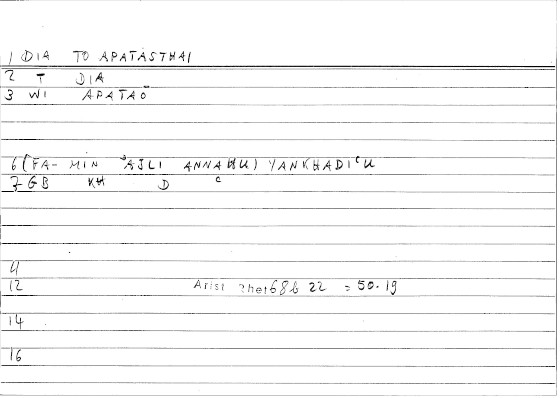 1 DIA TO APATASTHAI
2 T DIA
3 WI APATAŌ
6 (FA- MIN ʾAJLI ANNAHU) YANKHADIᶜU
7 GB KH D ᶜ
4
12 Arist Rhet 68b 22 = 50.19
14
16